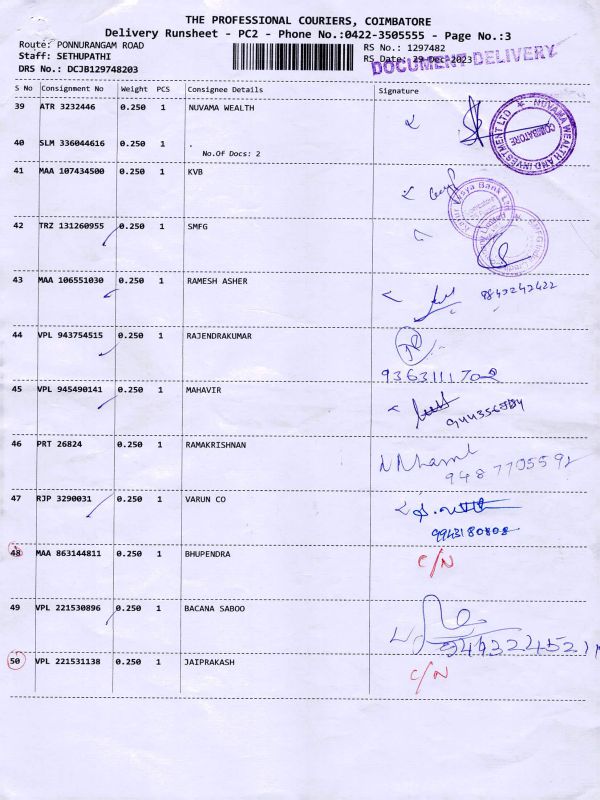 THE PROFESSIONAL COURIERS, COIMBATORE
Delivery Runsheet - PC2 - Phone No.:0422-3505555 - Page No.:3
Route: PONNURANGAM ROAD
RS No.: 1297482
Staff: SETHUPATHI
RS Date: 29-Dec-2023
DOCUMENT DELIVERY
DRS No.: DCJB129748203
S No Consignment No Weight PCS Consignee Details Signature
39 ATR 3232446 0.250 1 NUVAMA WEALTH
NUVAMA WEALTH AND INVESTMENT LTD
COIMBATORE
40 SLM 336044616 0.250 1 .
No.Of Docs: 2
41 MAA 107434500 0.250 1 KVB
Karur Vysya Bank Ltd
42 TRZ 131260955 0.250 1 SMFG
SMFG
43 MAA 106551030 0.250 1 RAMESH ASHER
9843243422
44 VPL 943754515 0.250 1 RAJENDRAKUMAR
9363111702
45 VPL 945490141 0.250 1 MAHAVIR
46 PRT 26824 0.250 1 RAMAKRISHNAN
9487705592
47 RJP 3290031 0.250 1 VARUN CO
9943180808
48 MAA 863144811 0.250 1 BHUPENDRA C/N
49 VPL 221530896 0.250 1 BACANA SABOO
50 VPL 221531138 0.250 1 JAIPRAKASH C/N